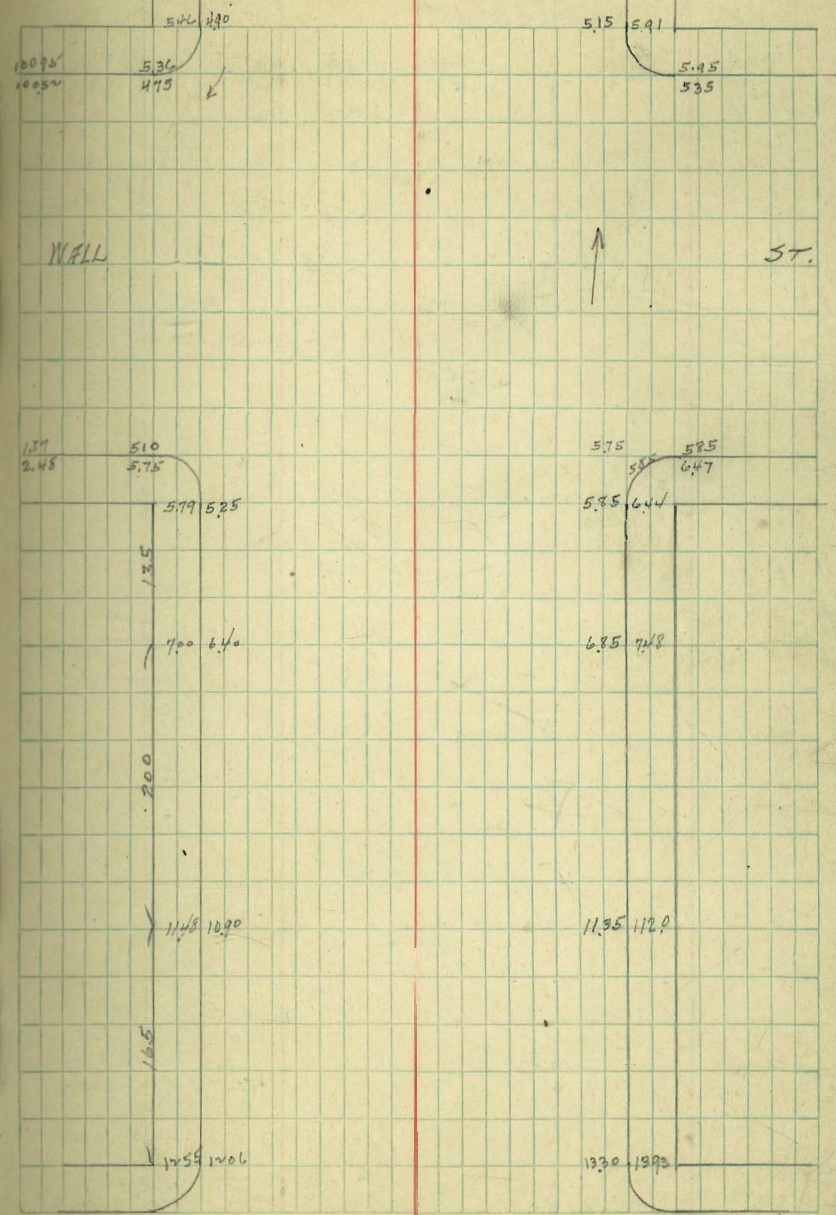 5.46 4.90 5.15 5.91
100.95 5.36 5.95
100.52 4.75 5.35
WALL ST.
1.37 5.10 5.75 5.85
2.48 5.75 5.85 6.47
5.79 5.25 5.85 6.44
13.5
7.00 6.40 6.85 7.48
200
11.48 10.90 11.35 11.20
16.5
12.55 12.06 13.30 13.93